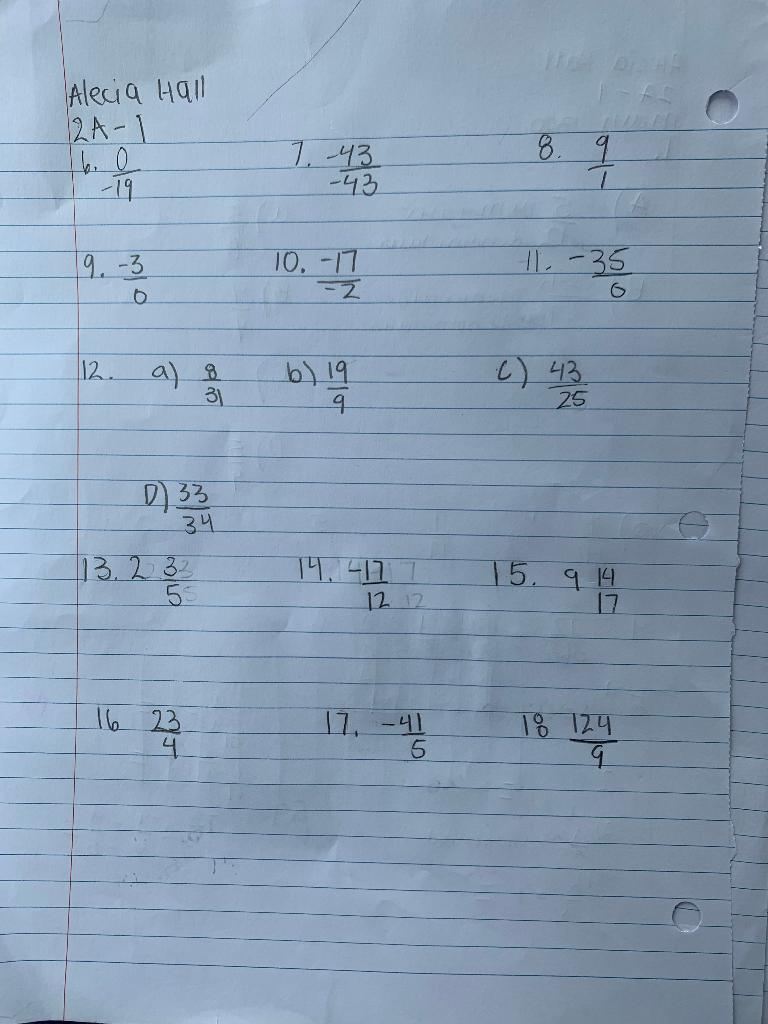 Alecia Hall
2A-1
6. 0/-19 7. -43/-43 8. 9/1
9. -3/0 10. -17/-2 11. -35/6
12. a) 8/31 b) 19/9 c) 43/25
D) 33/34
13. 2 3/5 14. 17/12 15. 9 14/17
16 23/4 17. -41/6 18 124/9